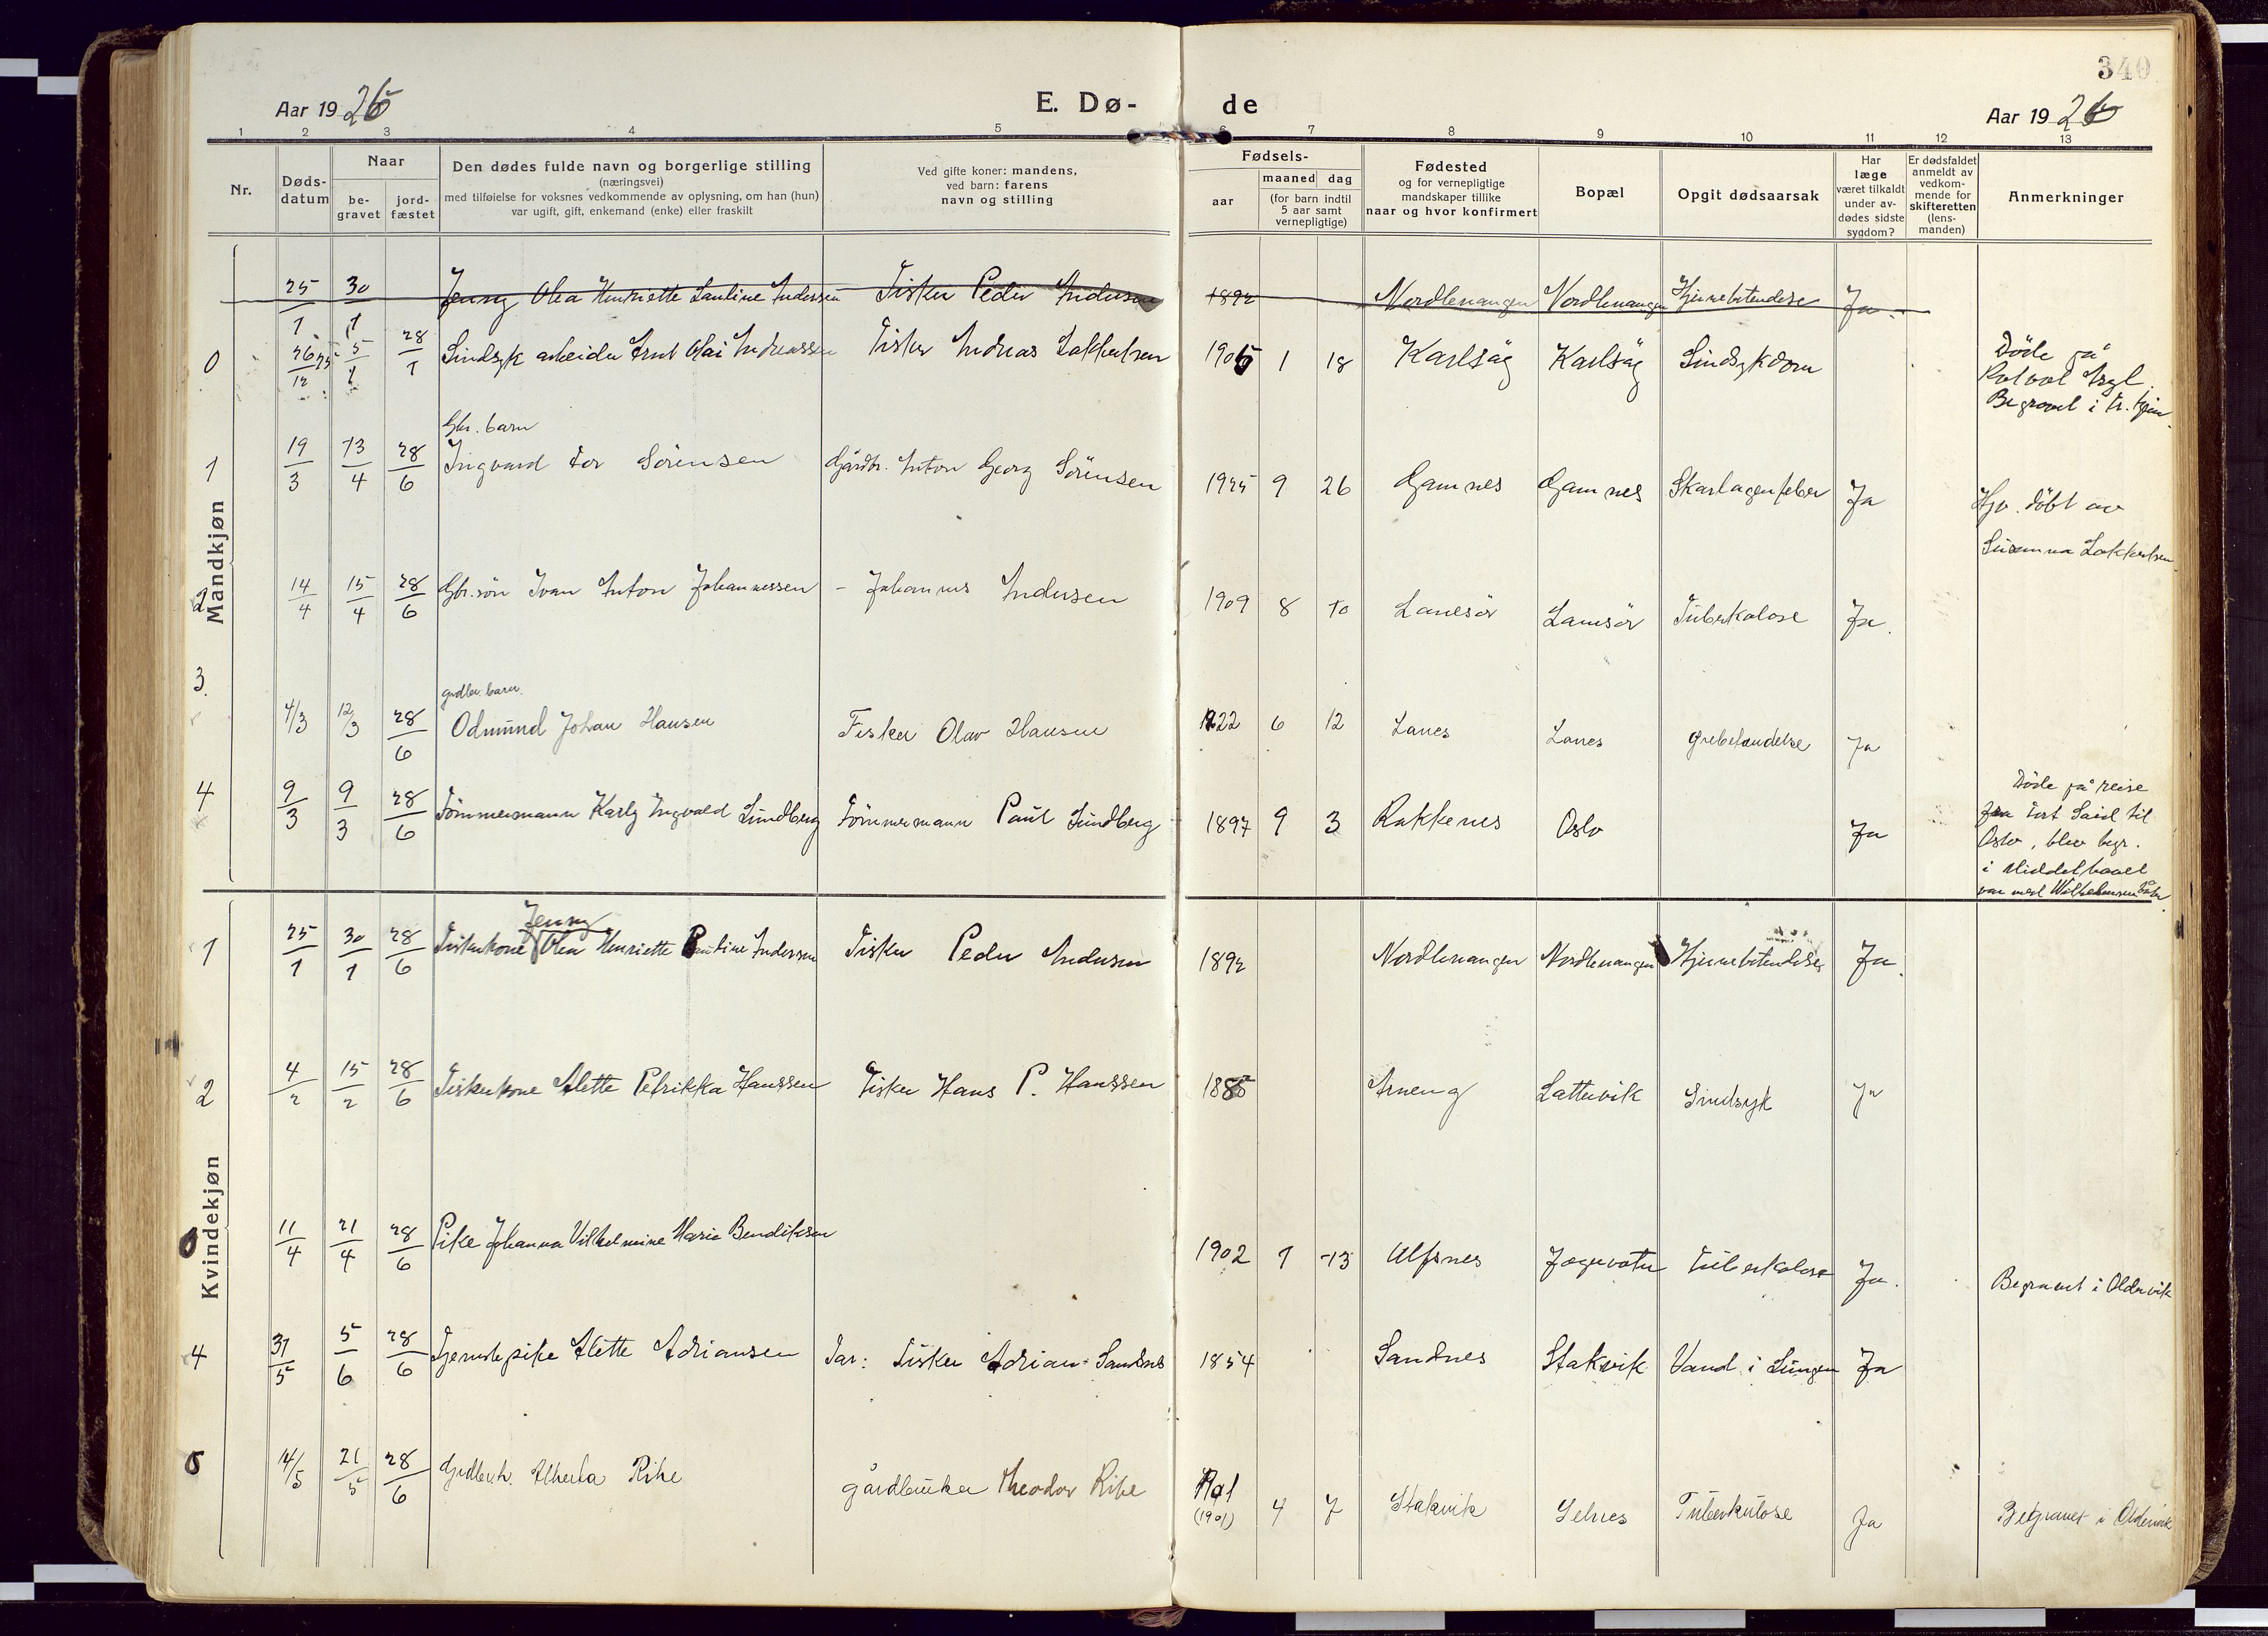 340
Aar 1926
E. Dø-
de
Aar 1926
1 2 3 4 5 6 7 8 9 10 11 12 13
Nr.
Døds-
datum
Naar
be-
gravet
jord-
fæstet
Den dødes fulde navn og borgerlige stilling
(næringsvei)
med tilføielse for voksnes vedkommende av oplysning, om han (hun)
var ugift, gift, enkemand (enke) eller fraskilt
Ved gifte koner: mandens,
ved barn: farens
navn og stilling
Fødsels-
aar
maaned dag
(for barn indtil
5 aar samt
vernepligtige)
Fødested
og for vernepligtige
mandskaper tillike
naar og hvor konfirmert
Bopæl
Opgit dødsaarsak
Har
læge
været tilkaldt
under av-
dødes sidste
sygdom?
Er dødsfaldet
anmeldt av
vedkom-
mende for
skifteretten
(lens-
manden)
Anmerkninger
Mandkjøn
25/1 30/1 Jenny Olea Henriette Pauline Anderssen Fisker Peder Andersen 1892 Nordlenangen Nordlenangen Hjernebetendelse Ja.
0 26/12 25 5/1 28/1 Sindsyk arbeider Arnt Olai Andreassen Fisker Andreas Lakkelsen 1905 1 18 Karlsøy Karlsøy Sindsykdom
Døde på
Rotvol Asyl.
Begravet i Tr. hjem.
Gbr. barn
1 19/3 13/4 28/6 Ingvard Tor Sørensen Gårdbr. Anton Georg Sørensen 1925 9 26 Gamnes Gamnes Skarlagenfeber Ja
Hjv. døbt av
Susanna Lakkelsen.
2 14/4 15/4 28/6 Gbr. søn Ivan Anton Johannessen - Johannes Andersen 1909 8 10 Lanesør Lanesør Tuberkolose Ja.
grdbr. barn.
3. 4/3 12/3 28/6 Odmund Johan Hansen Fisker Olav Hansen 1922 6 12 Lanes Lanes Ja
4 9/3 9/3 28/6 Tømmermann Karly Ingvald Lundberg Tømmermann Paul Lundberg 1897 9 3 Rakkenes Oslo Ja
Døde på reise
fra Port Said til
Oslo, blev begr.
i Middelhavet
var med Wilhelmsens båter.
Kvindekjøn
Jenny
1 25/1 30/1 28/6 Fiskerkone Olea Henriette Pauline Anderssen Fisker Peder Andersen 1892 Nordlenangen Nordlenangen Hjernebetendelse Ja.
2 4/2 15/2 28/6 Fiskerkone Alette Petrikka Hanssen Fisker Hans P. Hanssen 1885 Arnøyg Lattervik Sindsyk Ja
0 11/4 21/4 28/6 Pike Johanna Vilhelmine Marie Bendiksen 1902 1 13 Ulfsnes Jægervatn Tuberkolose Ja.
Begravet i Oldervik
4 31/5 5/6 28/6 Tjenestepike Alette Adriansen Far: Fisker Adrian Sandnes 1854 Sandnes Stakvik Vand i Lungen Ja
5 14/5 21/5 28/6 Alberta Ribe gårdbruker Theodor Ribe 1901 4 7 Stakvik Selnes Tuberkulose Ja
(1901)
Begravet i Oldervik